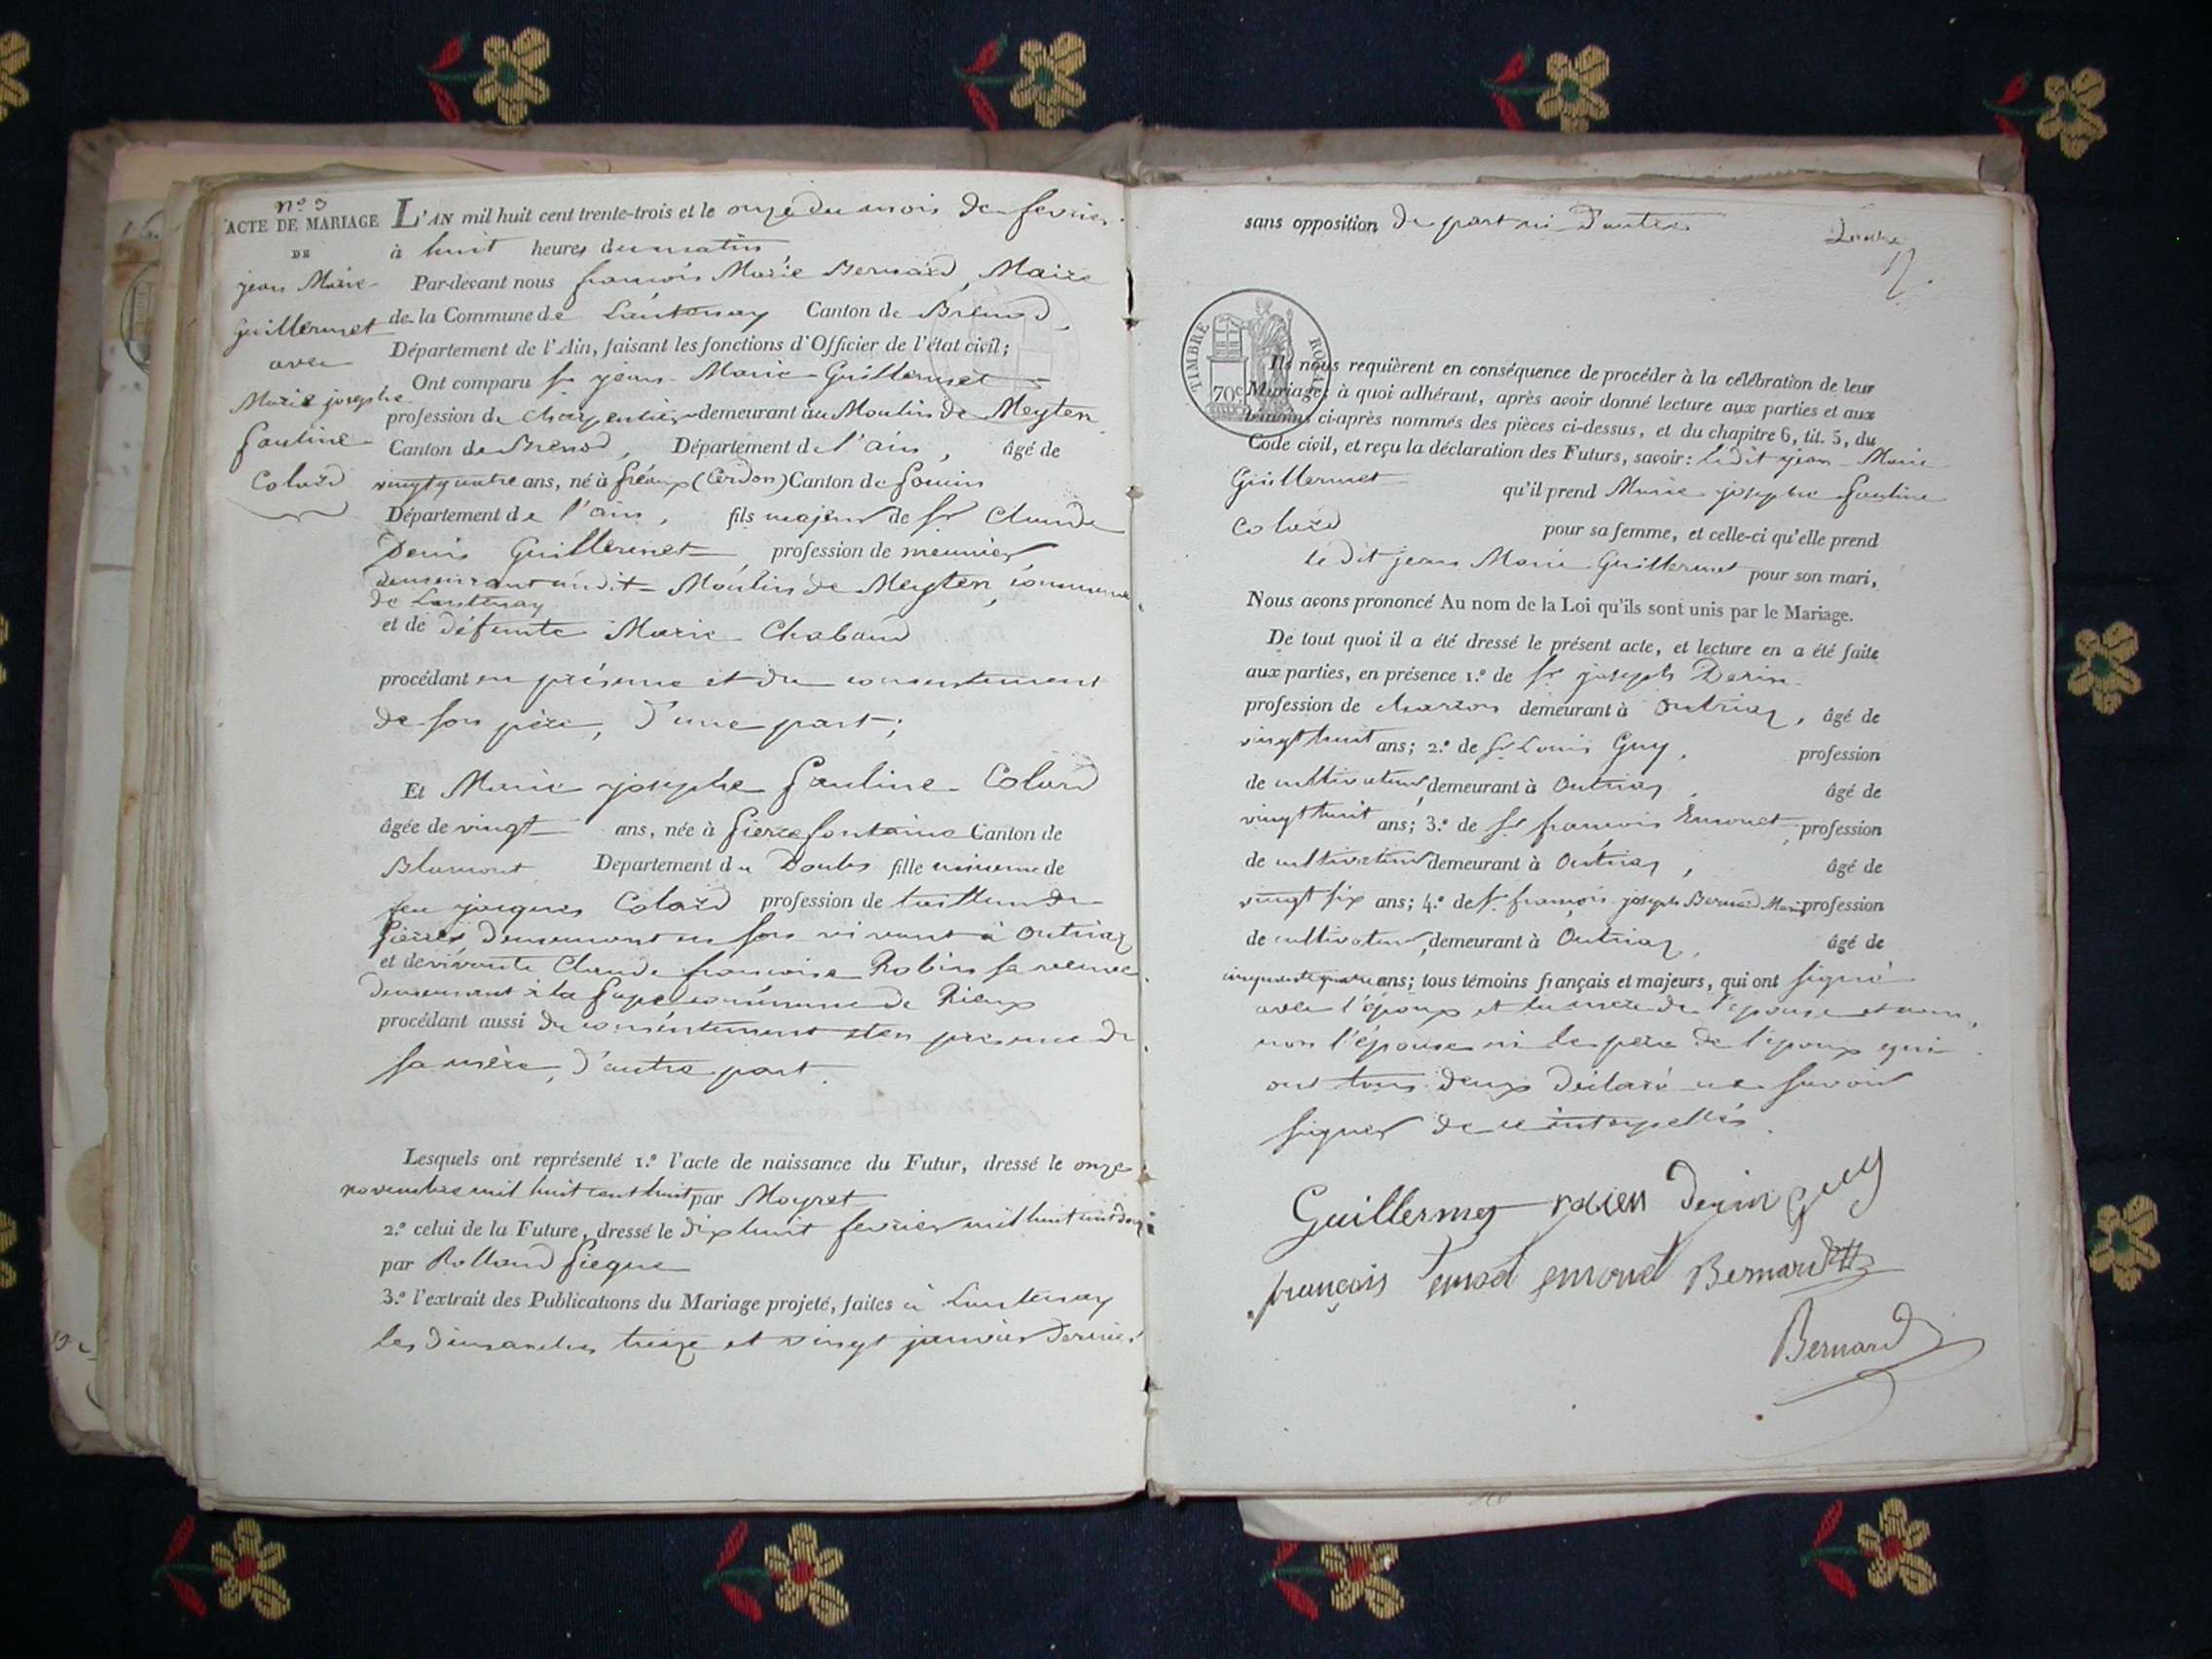 nº 3
ACTE DE MARIAGE
DE
jean Marie
Guillermet
avec
Marie josephe
Pauline
Colard
L'AN mil huit cent trente-trois et le onze du mois de fevrier
à huit heures du matin
Par-devant nous françois Marie Bernard, Maire
de la Commune de Lantenay Canton de Brenod,
Département de l'Ain, faisant les fonctions d'Officier de l'état civil;
Ont comparu sr jean Marie Guillermet
profession de charpentier demeurant au Moulin de Meyten
Canton de Brenod, Département de l'ain, âgé de
vingt quatre ans, né à préaux (Cerdon) Canton de Poncin
Département de l'ain, fils majeur de sr Claude
Denis Guillermet, profession de meunier
demeurant audit Moulin de Meyten, commune
de Lantenay
et de défunte Marie Chabaud
procédant en présence et du consentement
de son père, d'une part;
Et Marie josephe Pauline Colard
âgée de vingt ans, née à Pierrefontaine Canton de
Blamont Departement du Doubs fille mineure de
feu jacques Colard profession de tailleur de
Pierres, demeurant en son vivant à Outriaz
et de vivante Claude françoise Robin sa veuve
demeurant à la Pape commune de Rieux
procédant aussi du consentement et en présence de
sa mère, d'autre part.
Lesquels ont représenté 1.º l'acte de naissance du Futur, dressé le onze
novembre mil huit cent huit par Moyret
2.º celui de la Future, dressé le dix huit fevrier mil huit cent douze
par Rolland Piegue
3.º l'extrait des Publications du Mariage projeté, faites à Lantenay
les dimanches treize et vingt janvier dernier
sans opposition de part ni d'autre
TIMBRE ROYAL
70c
Ils nous requièrent en conséquence de procéder à la célébration de leur
Mariage; à quoi adhérant, après avoir donné lecture aux parties et aux
témoins ci-après nommés des pièces ci-dessus, et du chapitre 6, tit. 5, du
Code civil, et reçu la déclaration des Futurs, savoir: ledit jean Marie
Guillermet qu'il prend Marie josephe Pauline
Colard pour sa femme, et celle-ci qu'elle prend
ledit jean Marie Guillermet pour son mari,
Nous avons prononcé Au nom de la Loi qu'ils sont unis par le Mariage.
De tout quoi il a été dressé le présent acte, et lecture en a été faite
aux parties, en présence 1.º de sr joseph Derin
profession de charron demeurant à Outriaz, âgé de
vingt huit ans; 2.º de sr Louis Guy, profession
de cultivateur, demeurant à Outriaz, âgé de
vingt huit ans; 3.º de sr françois Emonet profession
de cultivateur demeurant à Outriaz, âgé de
vingt six ans; 4.º de sr françois joseph Bernard Marin profession
de cultivateur, demeurant à Outriaz, âgé de
cinquante quatre ans; tous témoins français et majeurs, qui ont signé
avec l'époux et la mère de l'épouse et nous,
non l'épouse ni le père de l'époux qui
ont tous deux déclaré ne savoir
signer de ce interpellés.
Guillermet Derin Guy
françois emonet Bernard
Bernard